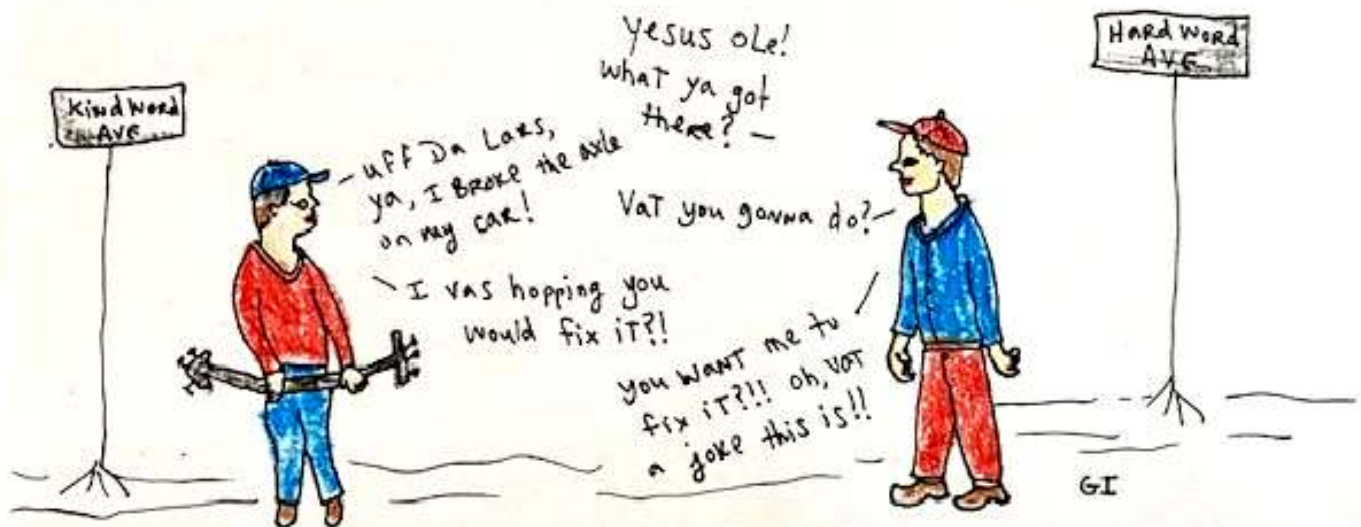 Kind Word
AVE
Hard Word
AVE
Yesus Ole!
what ya got
there? –
– uff Da Lars,
ya, I Broke the axle
on my car!
Vat you gonna do?
I vas hopping you
would fix it?!
you want me tu
fix it?!! oh, vat
a joke this is!!
GI